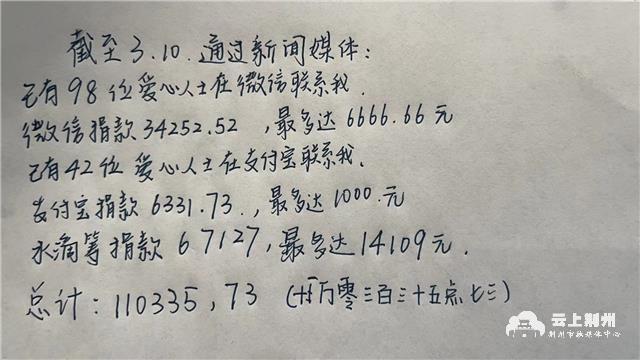 截至3.10.通过新闻媒体：
已有98位爱心人士在微信联系我.
微信捐款34252.52，最多达6666.66元
已有42位爱心人士在支付宝联系我.
支付宝捐款6331.73.，最多达1000.元
水滴筹捐款67127，最多达14109元.
总计：110335,73（十万零三百三十五点七三）
云上荆州
荆州市融媒体中心